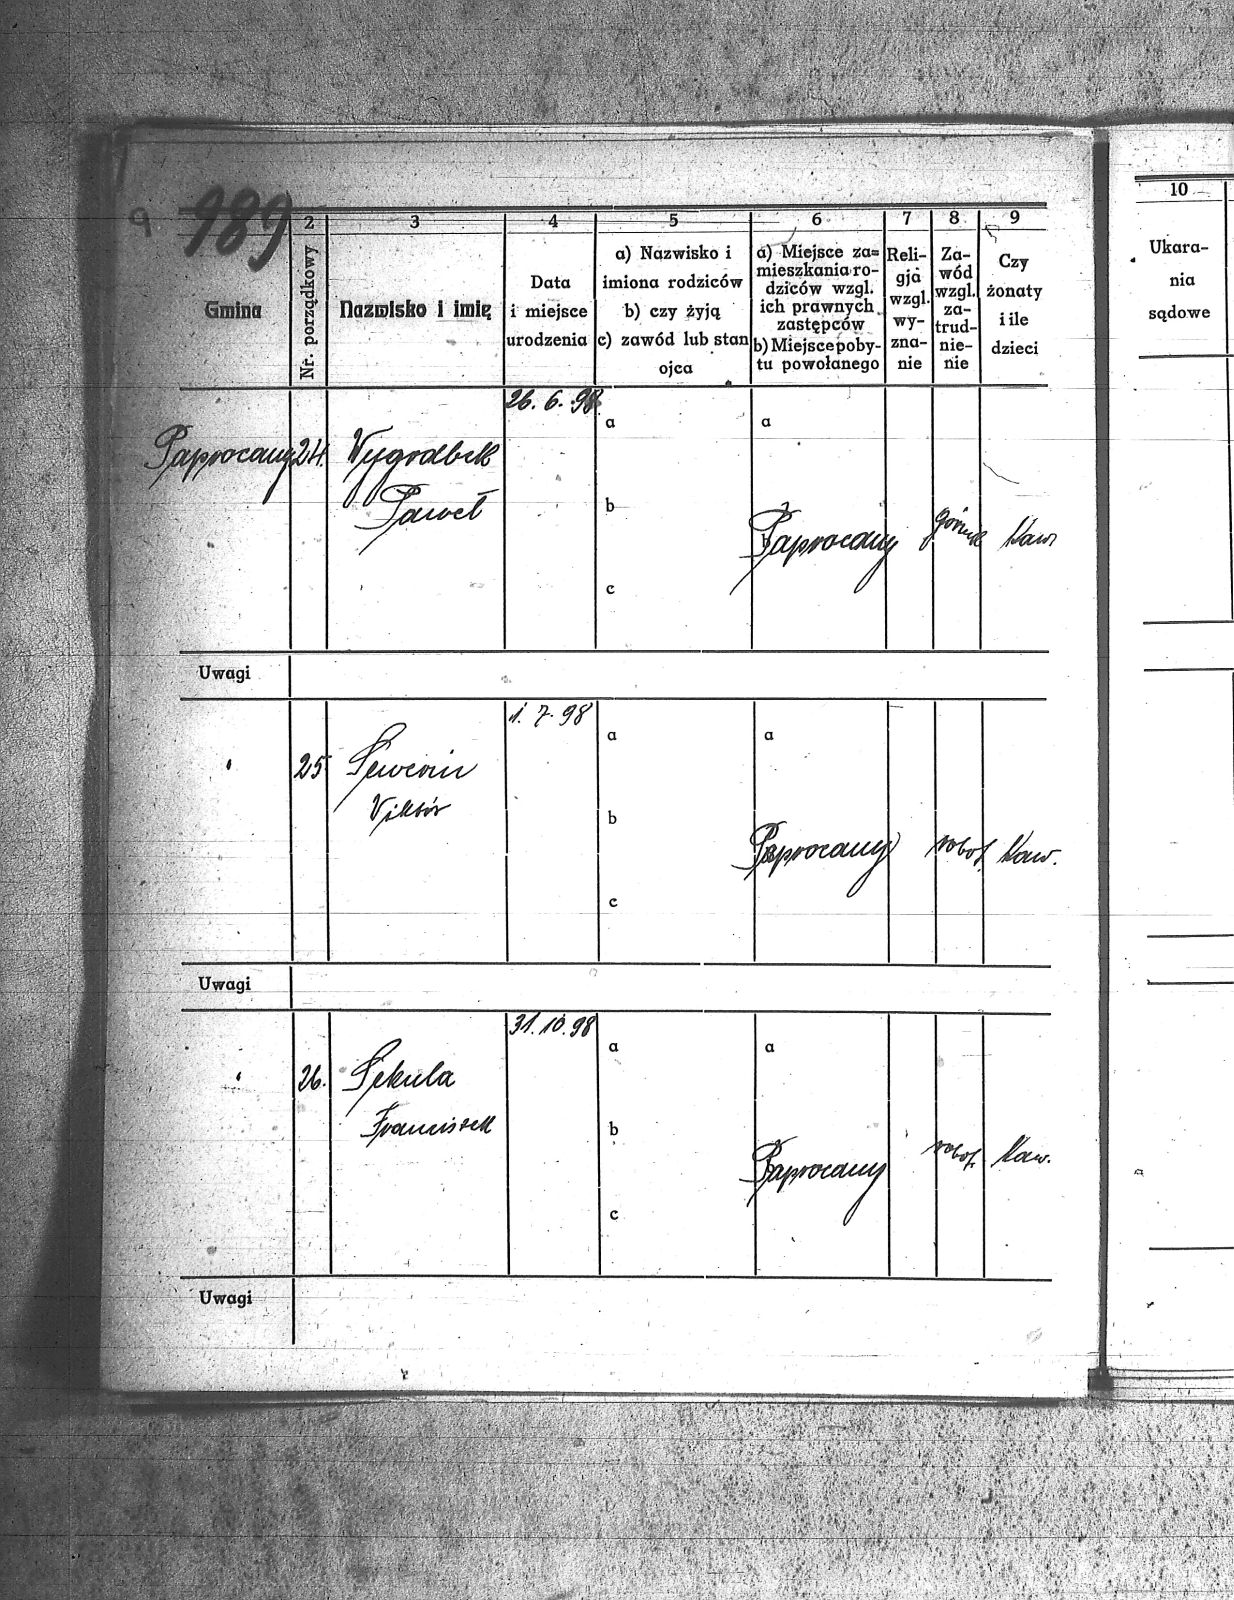 9
989
2
3
4
5
6
7
8
9
10
Gmina
Nr. porządkowy
Nazwisko i imię
Data
i miejsce
urodzenia
a) Nazwisko i
imiona rodziców
b) czy żyją
c) zawód lub stan
ojca
a) Miejsce za=
mieszkania ro-
dziców wzgl.
ich prawnych
zastępców
b) Miejsce poby-
tu powołanego
Reli-
gja
wzgl.
wy-
zna-
nie
Za-
wód
wzgl.
za-
trud-
nie-
nie
Czy
żonaty
i ile
dzieci
Ukara-
nia
sądowe
26. 6. 98
Paprocany 24.
Paweł
a
b
c
a
b
Paprocany górnik kaw
Uwagi
1. 7. 98
25
Viktór
a
b
c
a
Paprocany robot. kaw.
Uwagi
31. 10. 98
26. Sekula
Franciszek
a
b
c
a
Paprocany robot. kaw.
Uwagi